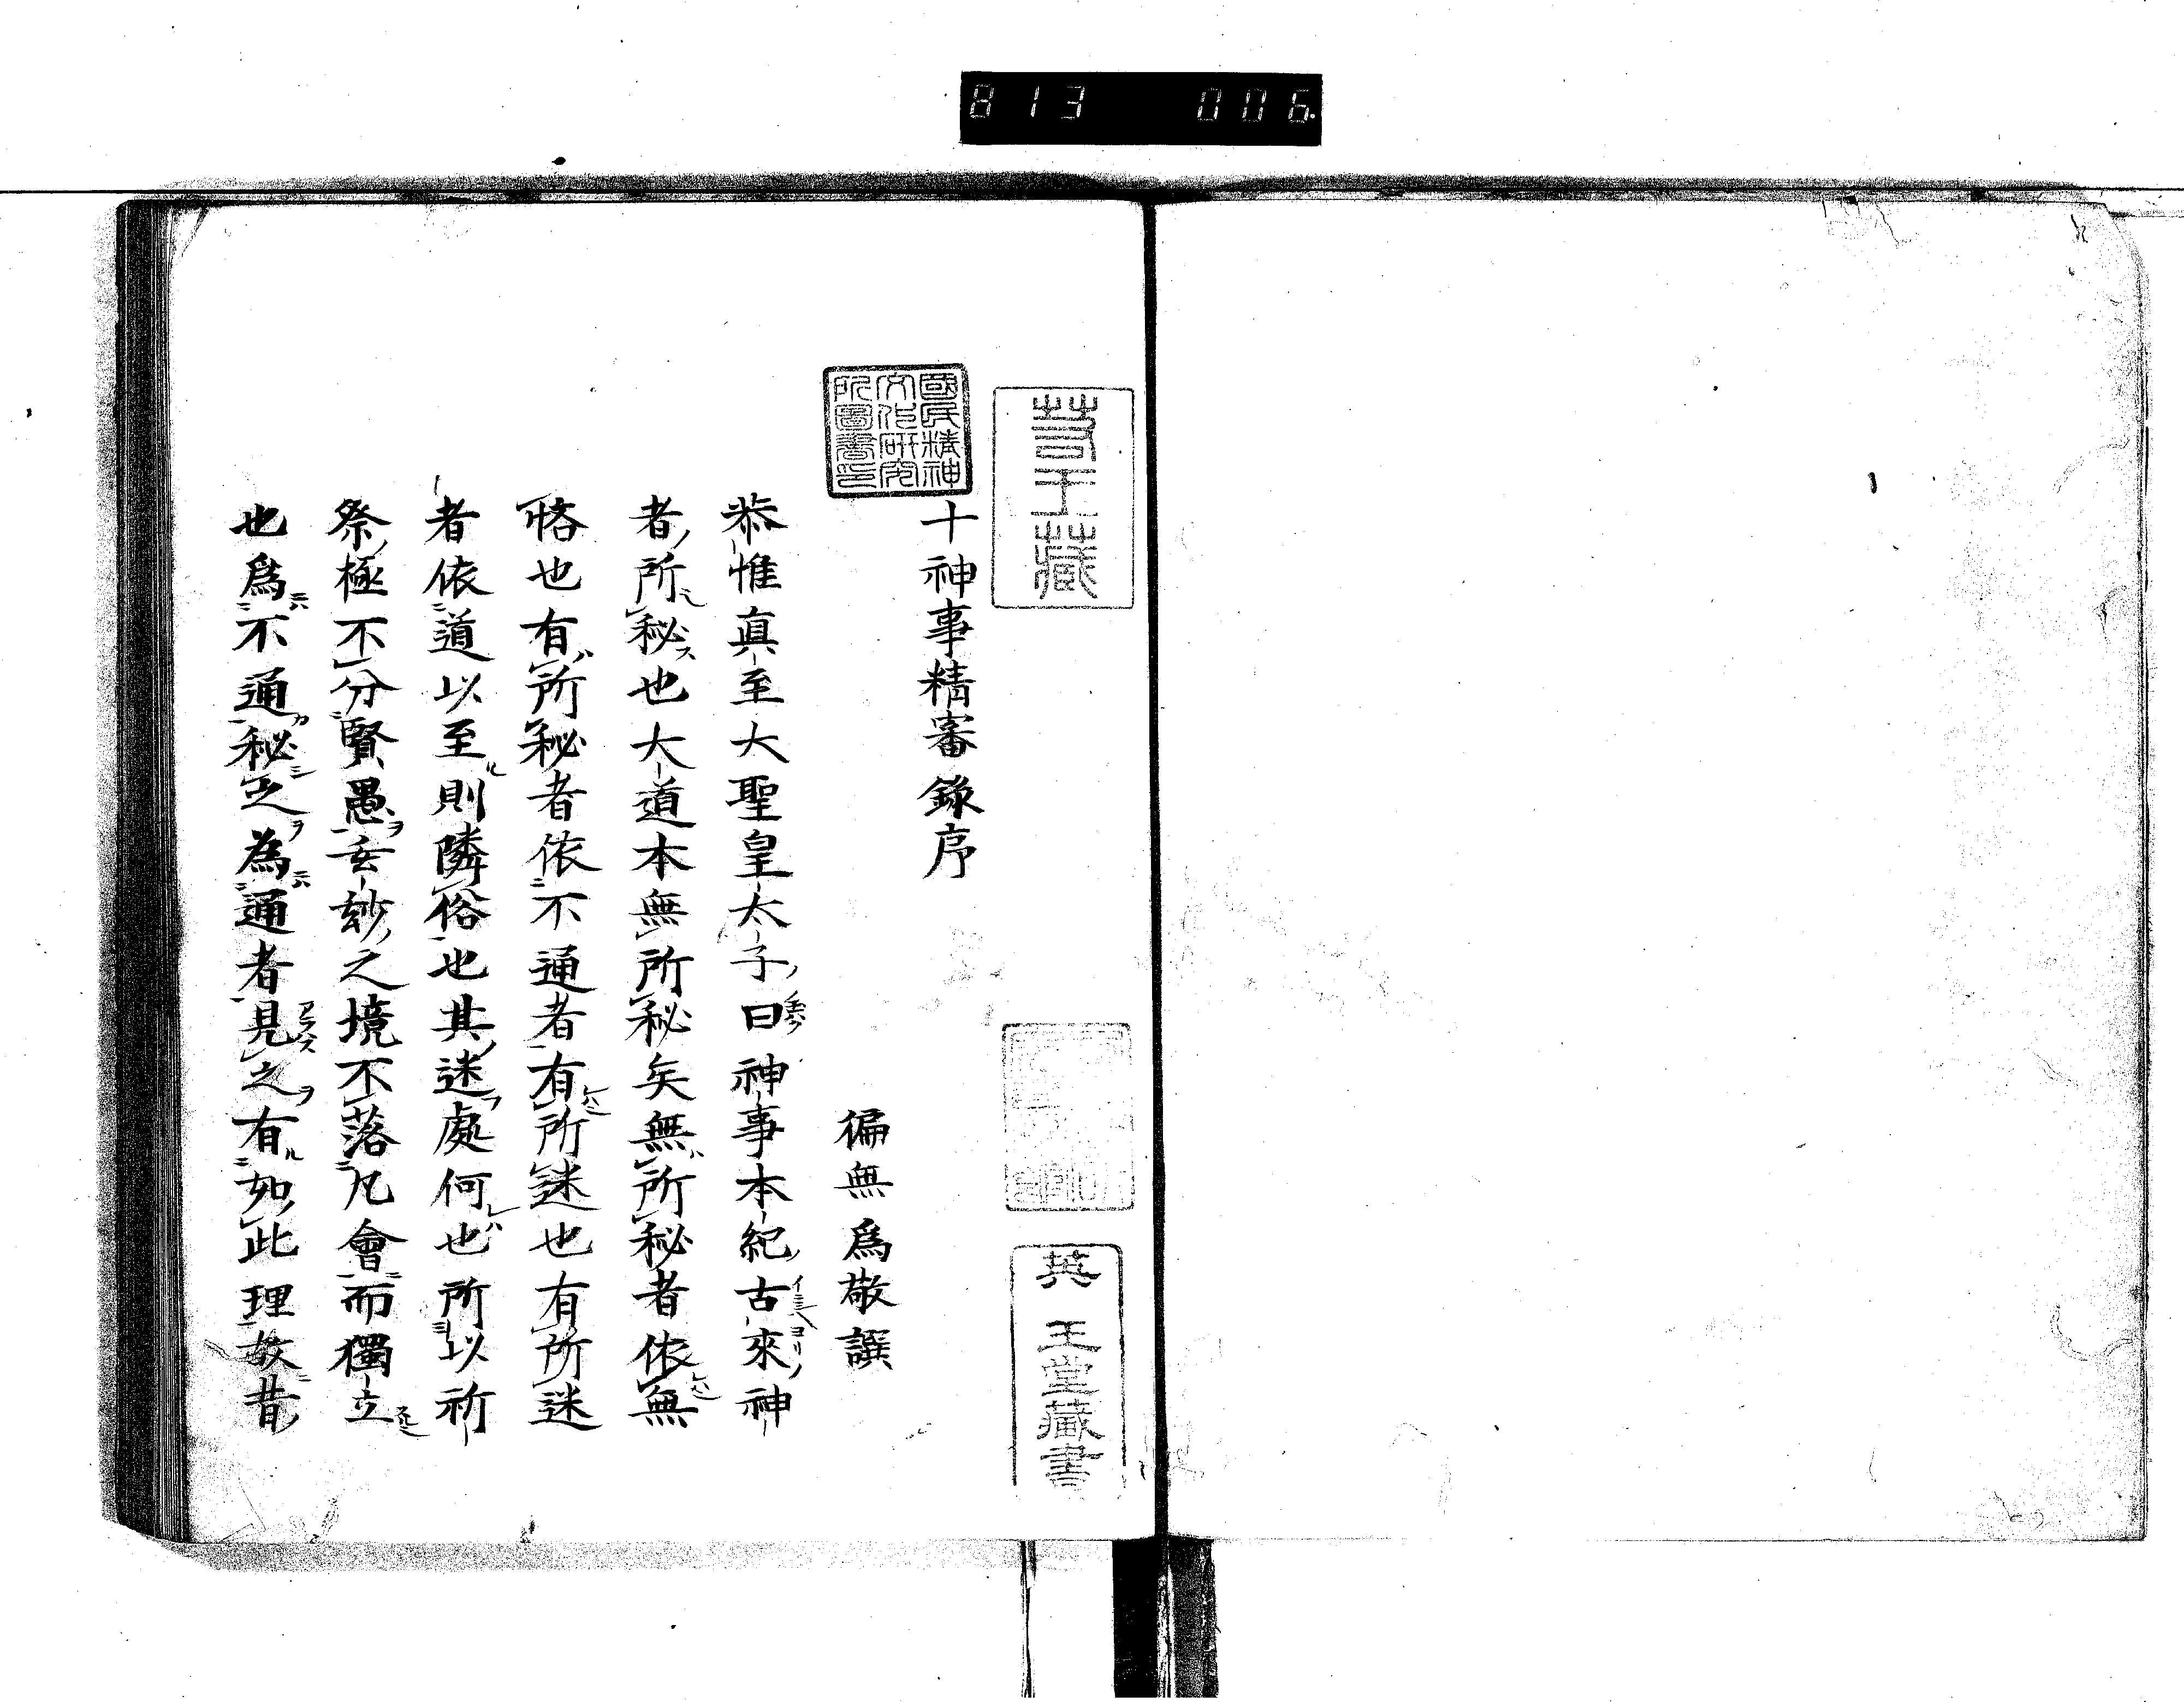 813 006
十神事精審錄序
徧無爲敬譔
恭惟真至大聖皇太子曰神事本紀古來神
者所秘也大道本無所秘矣無所秘者依無
悋也有所秘者依不通者有所迷也有所迷
者依道以至則隣俗也其迷處何也所以祈
祭極不分賢愚玄玅之境不落凡會而獨立
也爲不通秘之為通者見之有如此理故昔
國民精神
文化研究
所圖書印
藏
英
王堂藏書